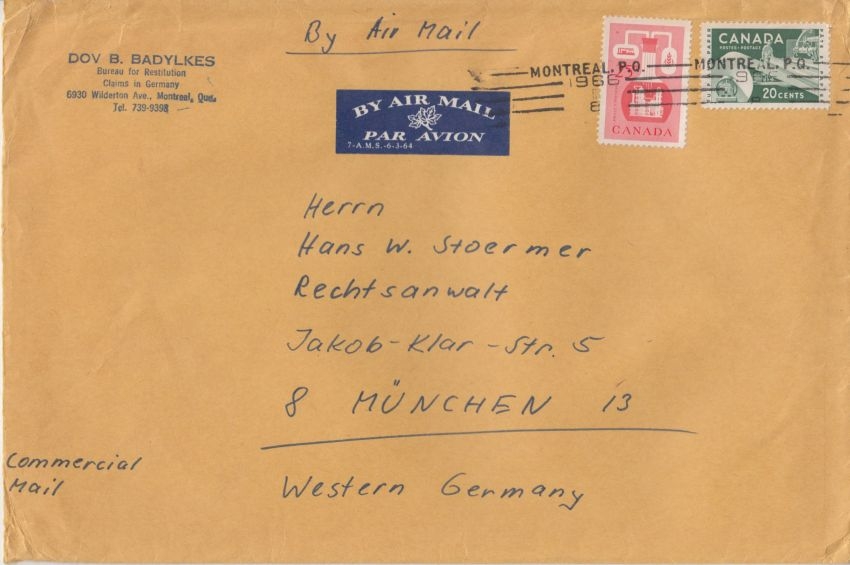 By Air Mail
DOV B. BADYLKES
Bureau for Restitution
Claims in Germany
6930 Wilderton Ave., Montreal, Que.
Tel. 739-9398
BY AIR MAIL
PAR AVION
7-A.M.S.-6-3-64
MONTREAL, P.Q.
1966
CANADA
MONTREAL, P.Q.
CANADA
POSTES-POSTAGE
20 CENTS
Herrn
Hans W. Stoermer
Rechtsanwalt
Jakob-Klar-Str. 5
8 MÜNCHEN 13
Western Germany
Commercial
Mail